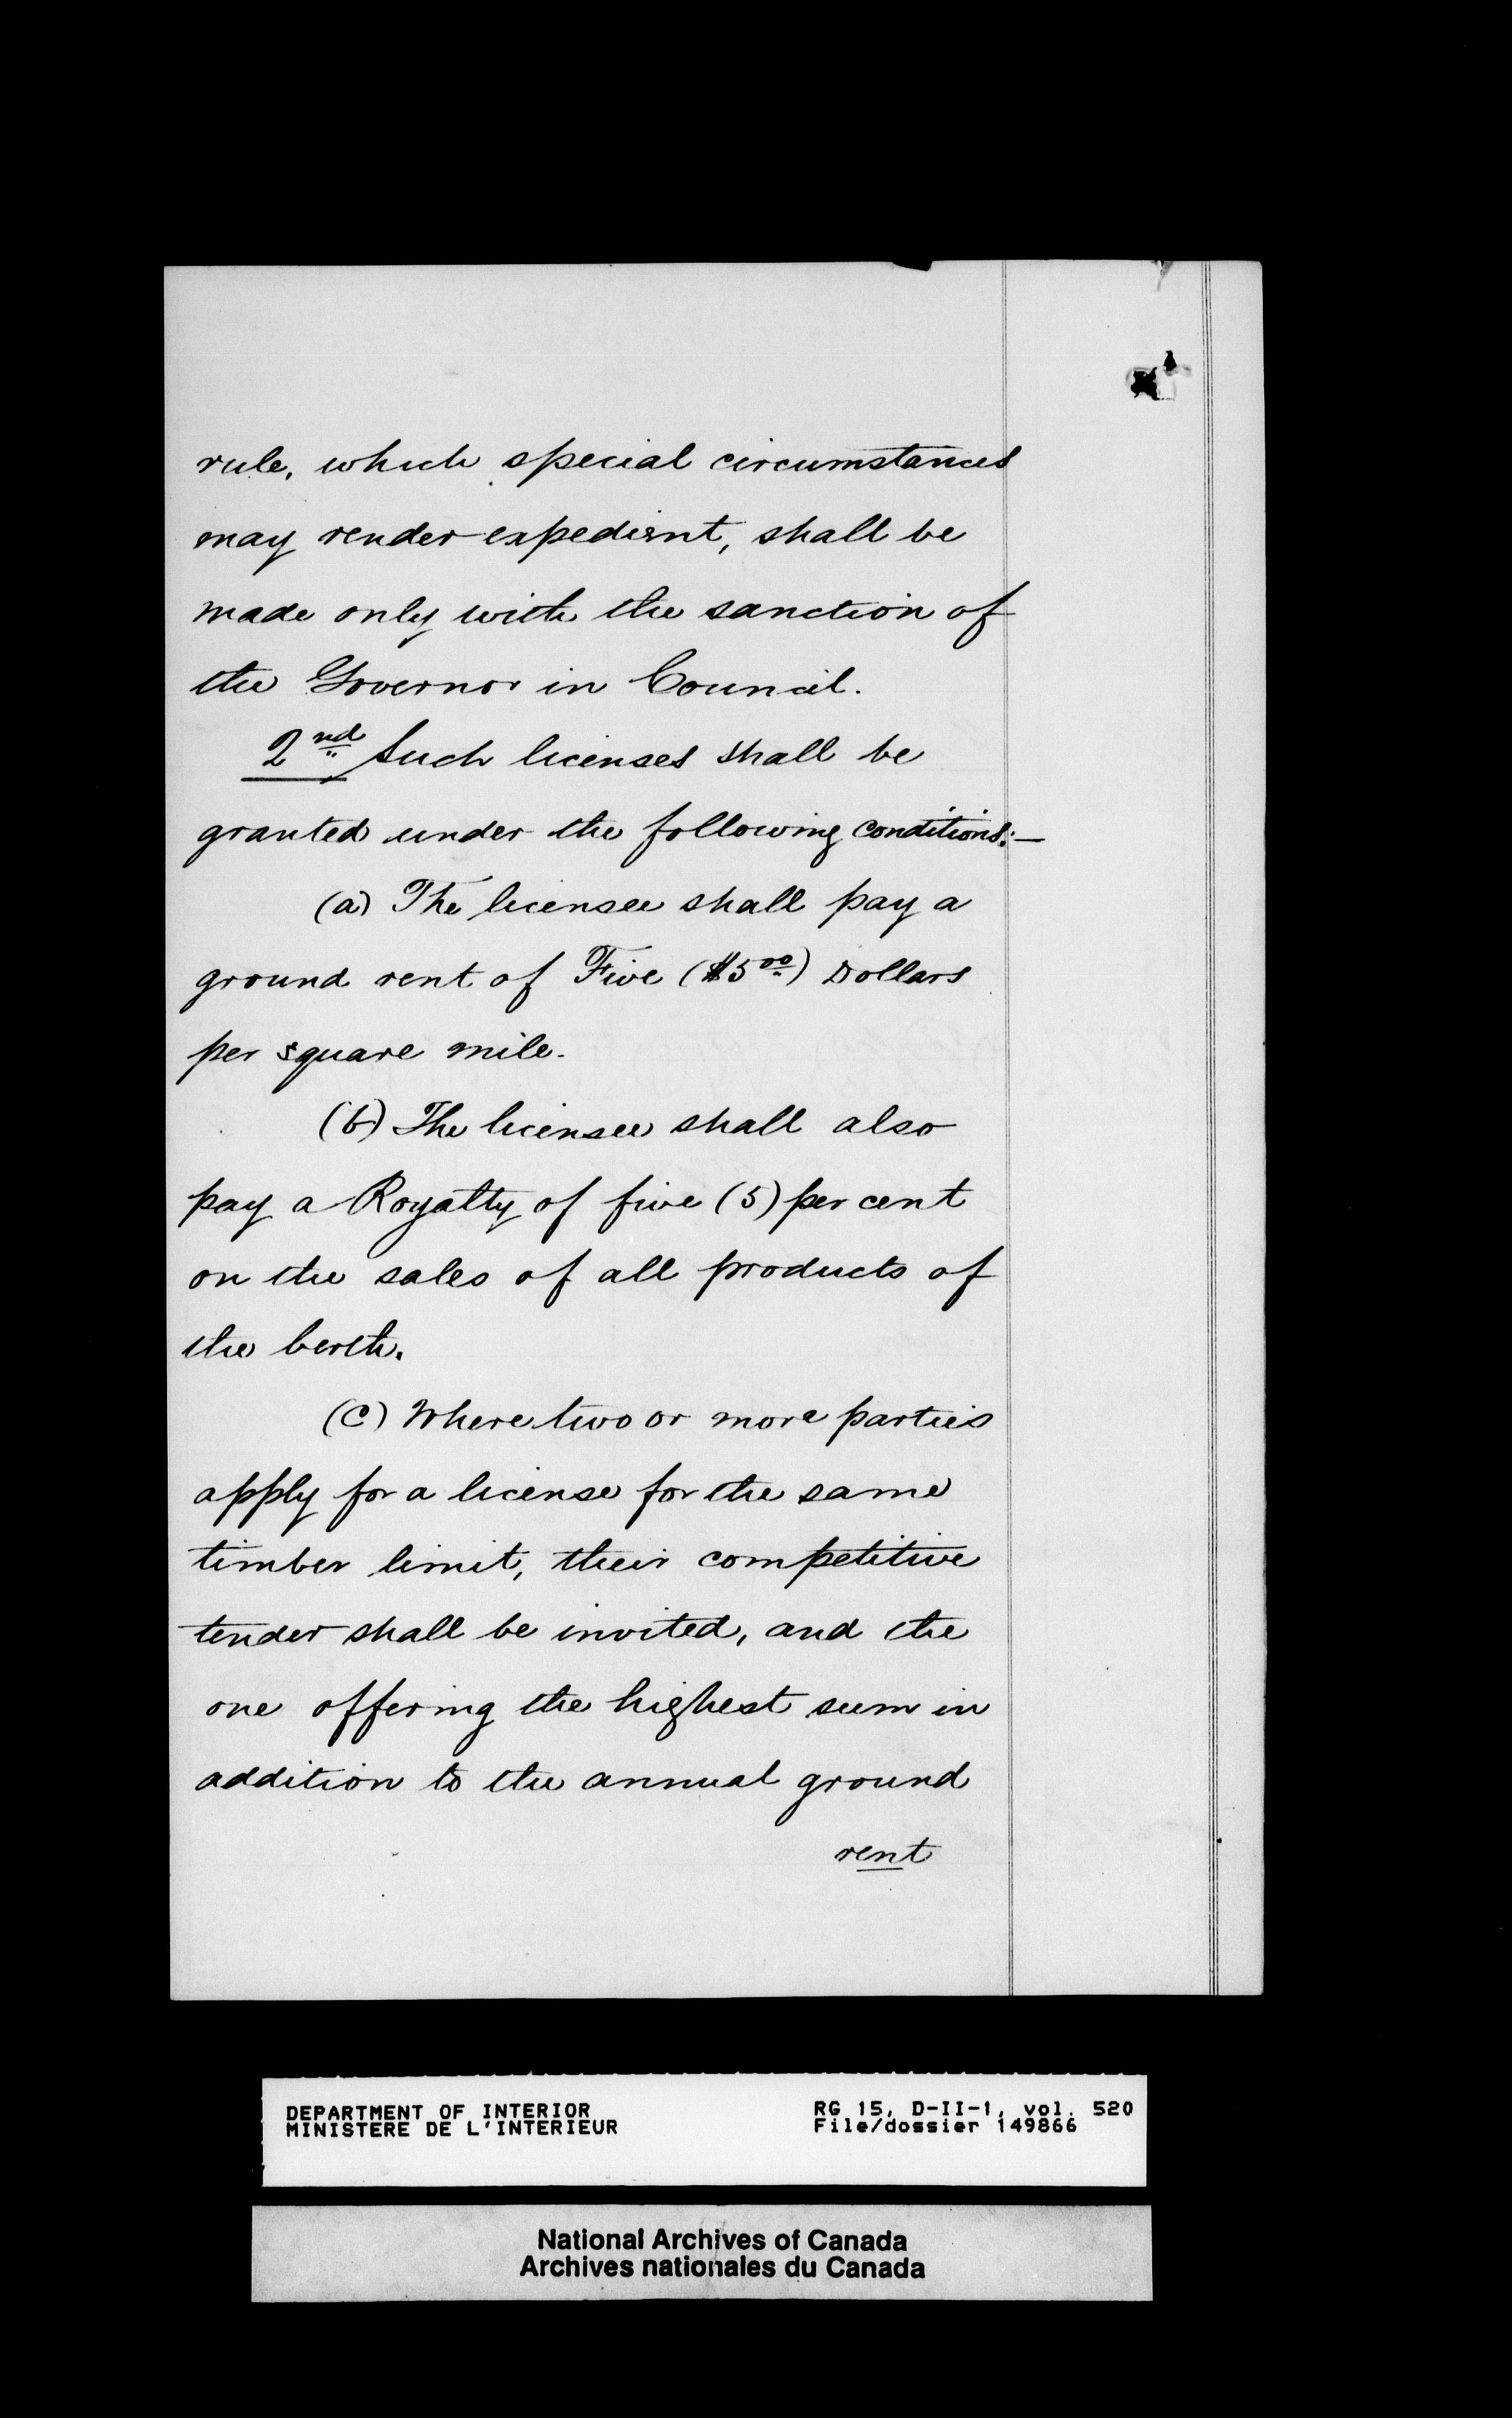 rule, which special circumstances
may render expedient, shall be
made only with the sanction of
the Governor in Council.
2nd Such licenses shall be
granted under the following conditions:—
(a) The licensee shall pay a
ground rent of Five ($5.00) Dollars
per square mile.
(b) The licensee shall also
pay a Royalty of five (5) per cent
on the sales of all products of
the berth.
(C) Where two or more parties
apply for a license for the same
timber limit, their competitive
tender shall be invited, and the
one offering the highest sum in
addition to the annual ground
rent
DEPARTMENT OF INTERIOR RG 15, D-II-1, vol. 520
MINISTERE DE L'INTERIEUR File/dossier 149866
National Archives of Canada
Archives nationales du Canada